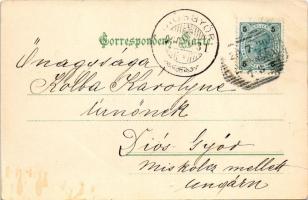 Correspondenz-Karte.
DIÓSGYŐR
Önagysága
Kolba Károlyné
úrnőnek
Diós Győr
Miskolcz mellett
Ungarn